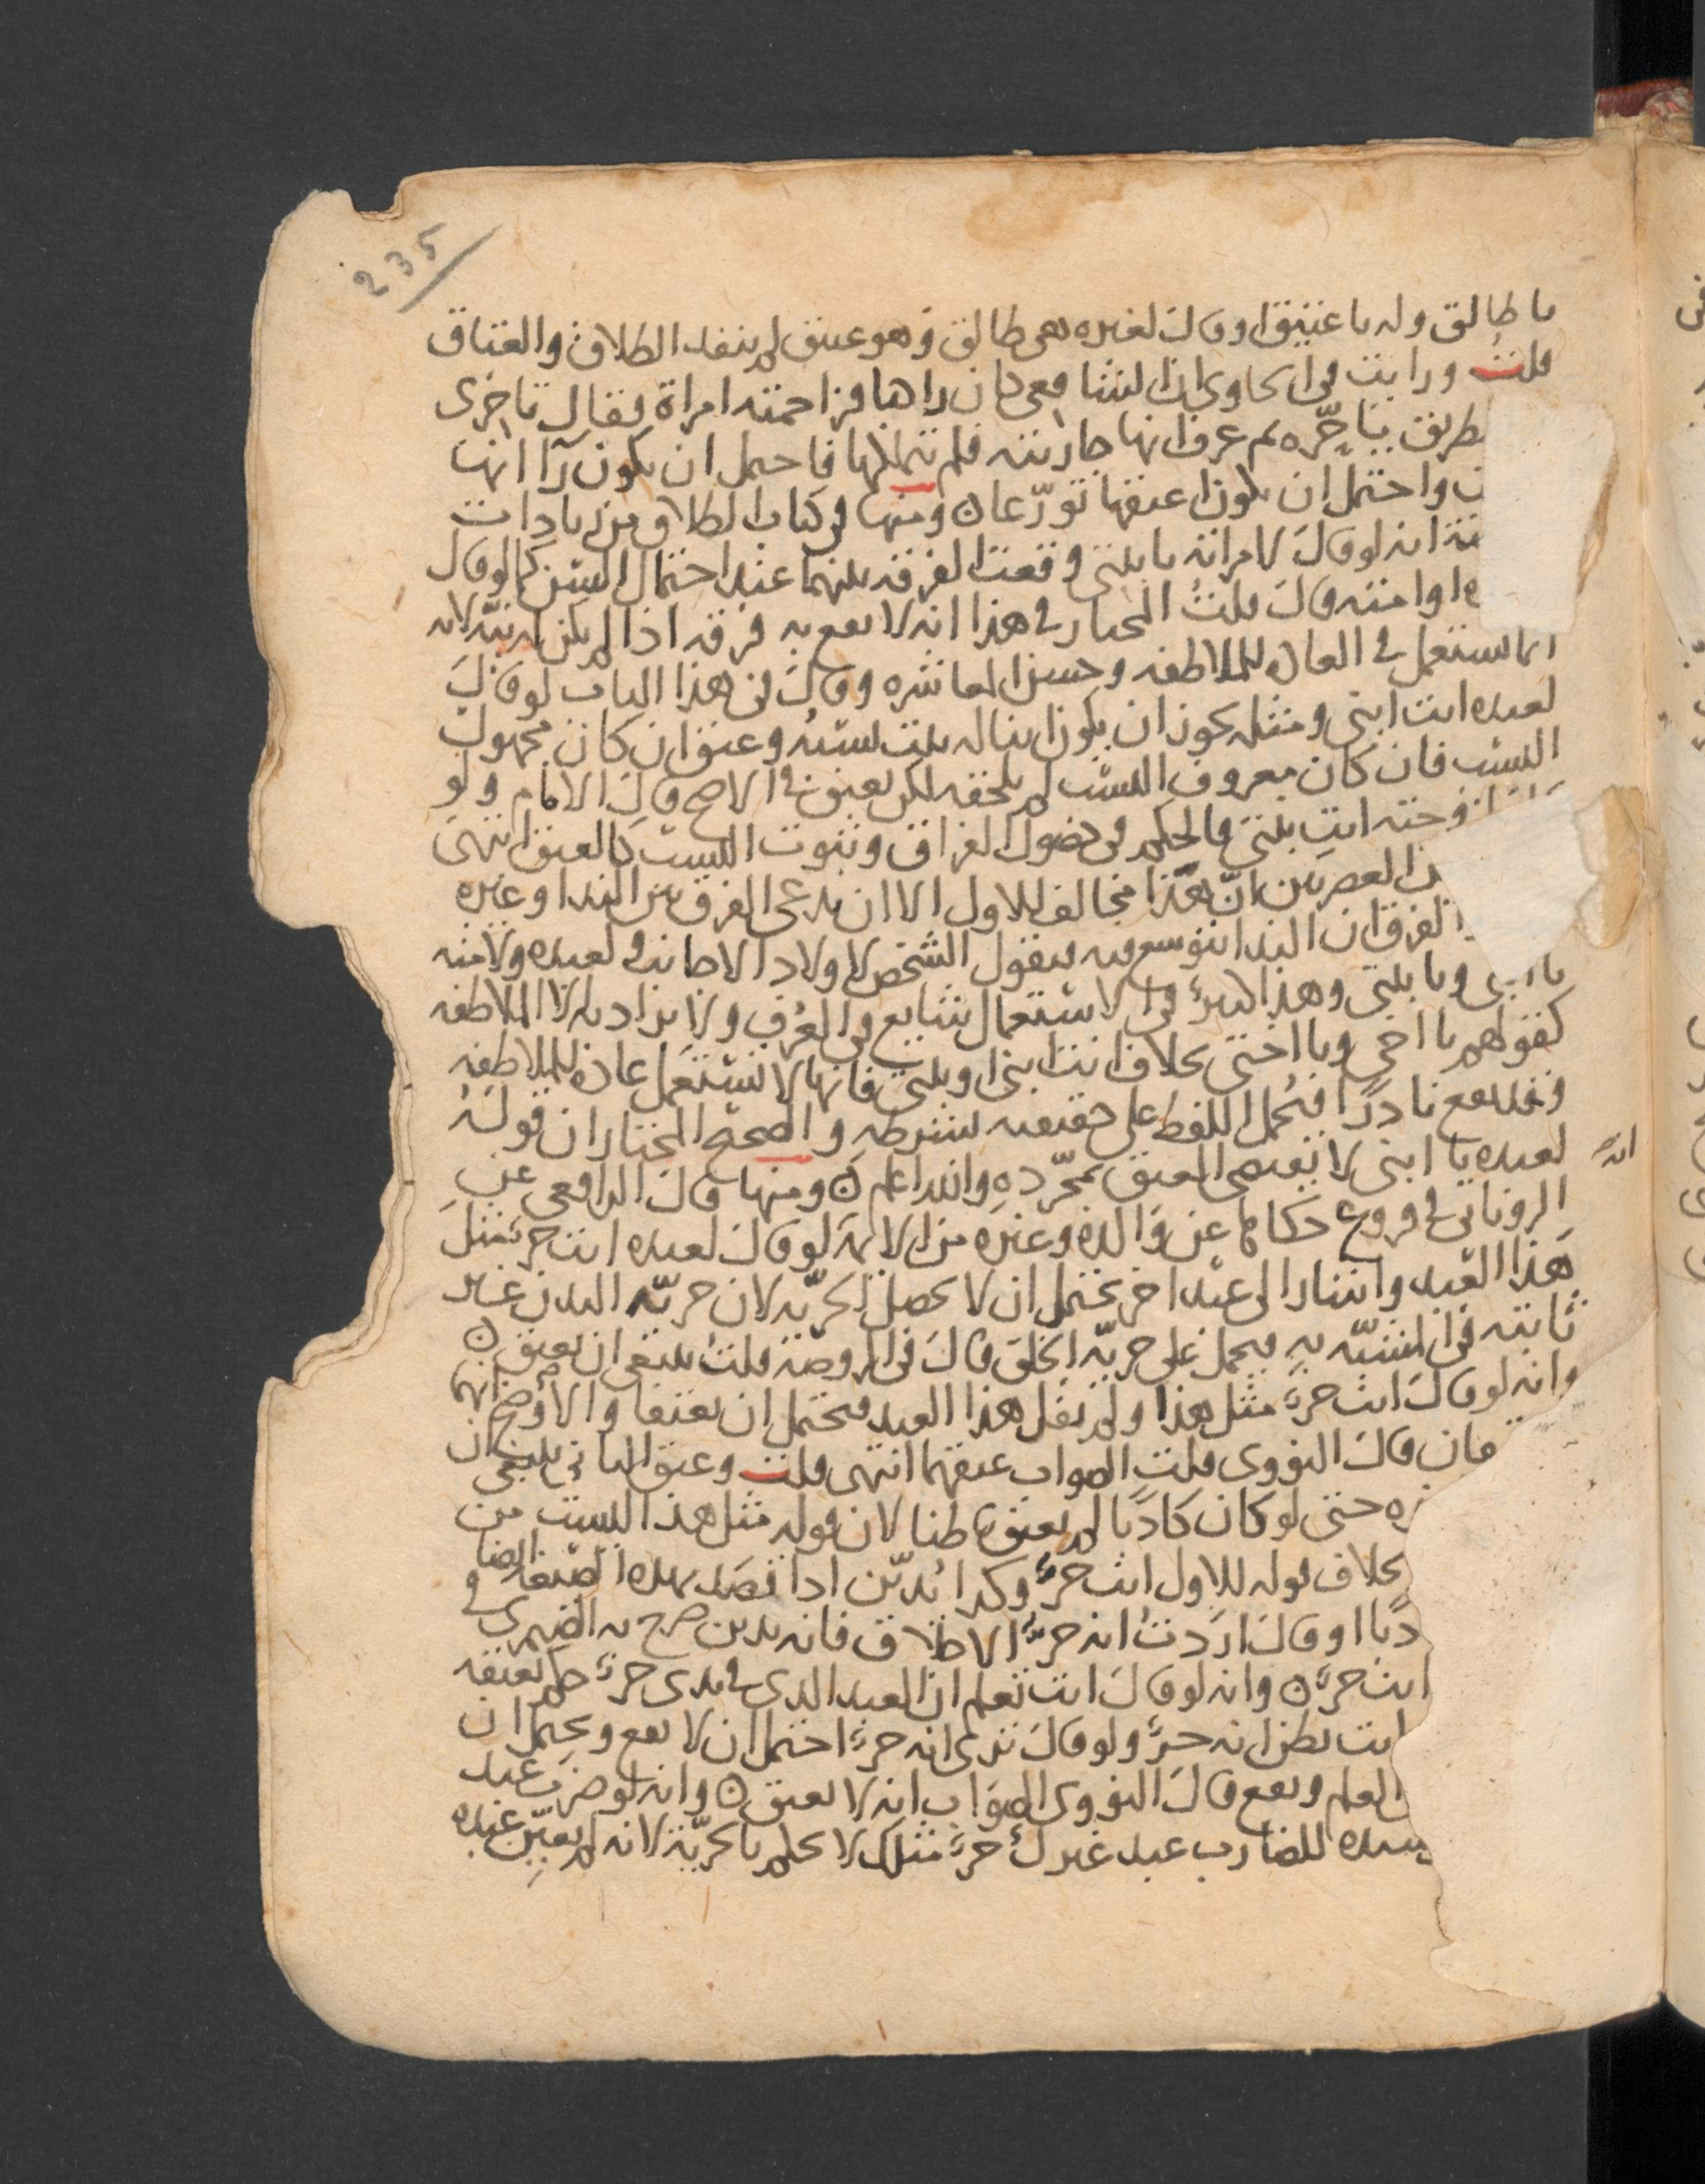 235
يا طالق وله يا عتيق او قال لغيره هي طالق وهو عتيق لم ينفذ الطلاق والعتاق
قلت ورايت في الحاوي ان الشافعي كان راها فزاحمته امراة فقال تاخري
بطريق يا حره ثم عرف انها جاريته فلم يتملكها فاحتمل ان يكون رآ انها
واحتمل ان يكون اعتقها تورّعا ن ومنها في كتاب الطلاق من زيادات
انه لو قال لامراته يا بنتي وقعت الفرقه بينهما عند احتمال السن كما لو قال
او امته قال قلت المختار في هذا انه لا يقع به فرقه اذا لم يكن له نيّه لانه
انما يستعمل في العاده للملاطفه وحسن المعاشره وقال في هذا الباب لو قال
لعبده انت ابني ومثله يجوز ان يكون ابنا له يثبت نسبُه وعتق ان كان مجهول
النسب فان كان معروف النسب لم يلحقه لكن يعتق في الاصح قال الامام ولو
لزوجته انت بنتي فالحكم في حصول الفراق وثبوت النسب كالعتق انتهى
العصريين انّ هذا مخالف للاول الا ان يدعي الفرق بين الندا وغيره
الفرق ان الندا يتوسع فيه فيقول الشخص لاولاد الاجانب ولعبده ولامته
يا ابني ويا بنتي وهذا كثير في الاستعمال شايع في العرف ولا يراد به الا الملاطفه
كقولهم يا اخي ويا اختي بخلاف انت ابني او بنتي فانها لا تستعمل عادة للملاطفه
وقد يقع نادرًا فيحمل اللفظ على حقيقته بشرطه والصحيح المختار ان قوله
لعبده يا ابني لا يقتضي العتق بمجرّده والله اعلم ن ومنها قال الرافعي عن
الروياني في فروع حكاها عن والده وغيره من الايمة لو قال لعبده انت حرّ مثل
انه
هذا العبد واشار الى عبد اخر يحتمل ان لا تحصل الحريّه لان حريّه البدن غير
ثابته في المشبّه به فيحمل على حريّه الخلق قال في الروضة قلت ينبغي ان يعتق ن
وانه لو قال انت حرّ مثل هذا ولم يقل هذا العبد فيحتمل ان يعتقا والاوضح انهما
قال النووي قلت الصواب عتقهما انتهى قلت وعتق الثاني ينبغي ان
حتى لو كان كاذبا لم يعتق باطنا لان قوله مثل هذا ليست من
بخلاف قوله للاول انت حرّ وكذا يُديّن اذا قصد بهذه الصيغه ايضا
او قال اردتُ انه حرّ الاطلاق فانه يدين صرح به الصيمري في
انت حرّ ن وانه لو قال انت تعلم ان العبد الذي في يدي حرّ حكم بعتقه
انت تظن انه حرّ ولو قال ترى انه حرّ احتمل ان لا يقع ويحتمل ان
العلم ويقع قال النووي الصواب انه لا يعتق ن وانه لو ضرب عبد
سيده للضارب عبد غيرك حرّ مثلك لا يحكم بالحريّة لانه لم يعيّن عبده